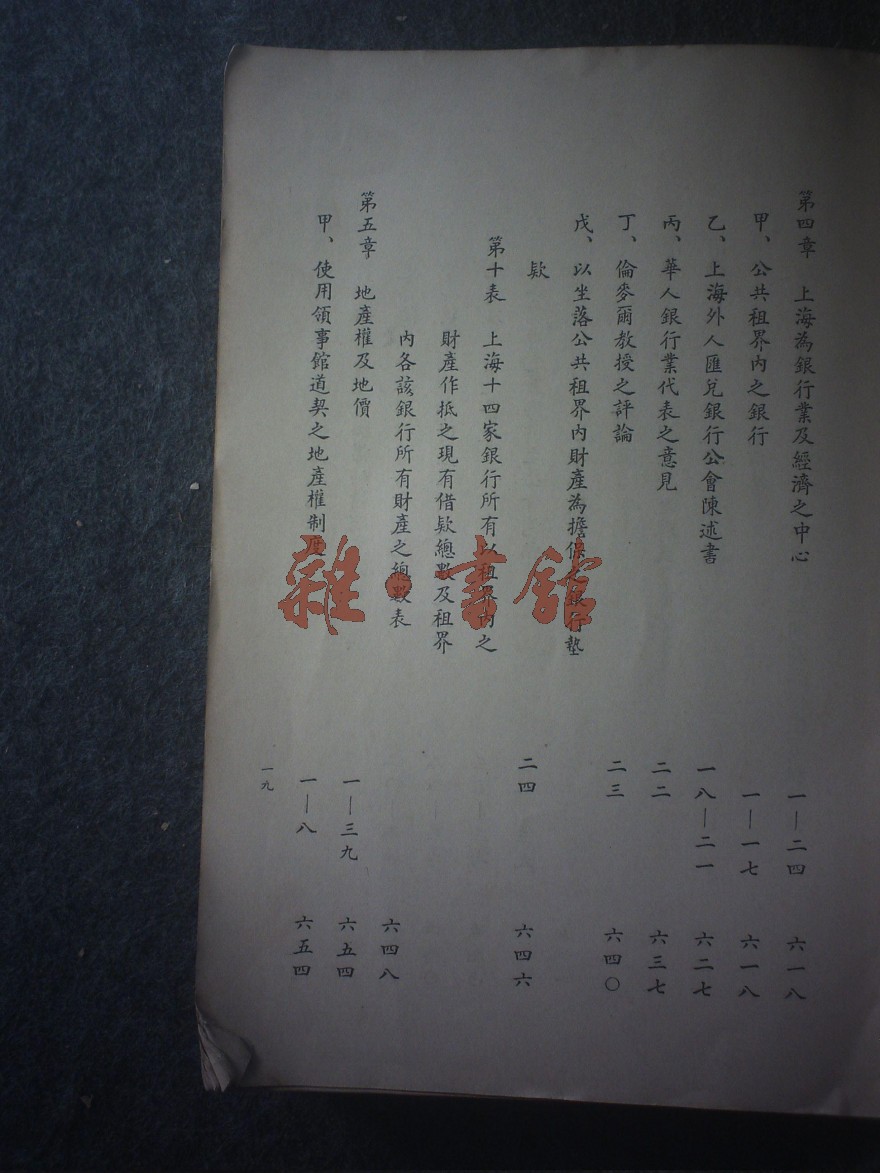 第四章 上海為銀行業及經濟之中心 一—二四 六一八
甲、公共租界內之銀行 一—一七 六一八
乙、上海外人匯兌銀行公會陳述書 一八—二一 六二七
丙、華人銀行業代表之意見 二二 六三七
丁、倫麥爾教授之評論 二三 六四〇
戊、以坐落公共租界內財產為擔保之銀行墊
欵 二四 六四六
第十表 上海十四家銀行所有以租界內之
財產作抵之現有借欵總數及租界
內各該銀行所有財產之總數表 六四八
第五章 地產權及地價 一—三九 六五四
甲、使用領事館道契之地產權制度 一—八 六五四
一九
雜·書館